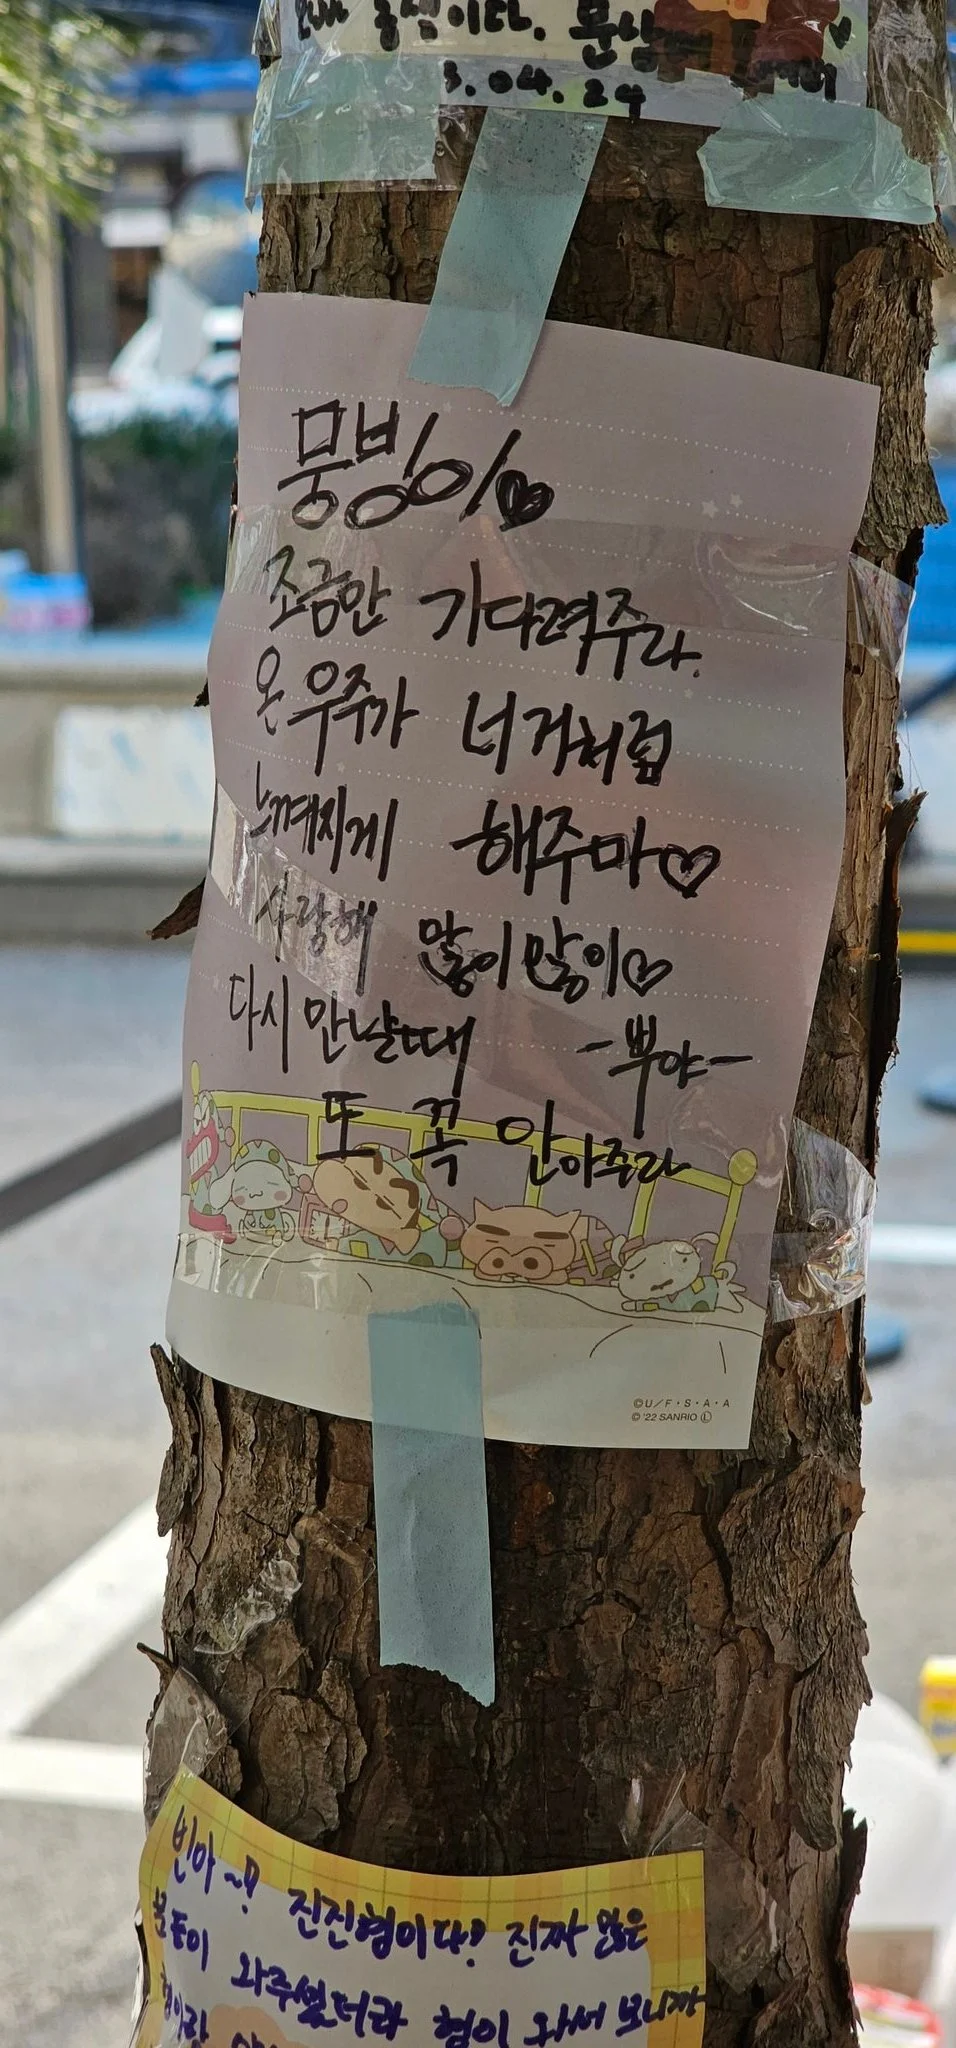 녀석이다. 문
3.04.24
뭉빙이♥
조금만 기다려주라.
온 우주가 너 거처럼
느껴지게 해주마♡
사랑해 많이많이♡
다시 만날때 -뿌야-
또 꼭 안아주라
©U/F・S・A・A
© '22 SANRIO Ⓛ
빈아~? 진진형이다? 진짜 많은
분들이 와주셨더라 형이 와서 보니까
형이랑